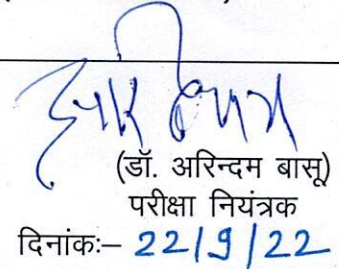 (डॉ. अरिन्दम बासू)
परीक्षा नियंत्रक
दिनांक:– 22/9/22